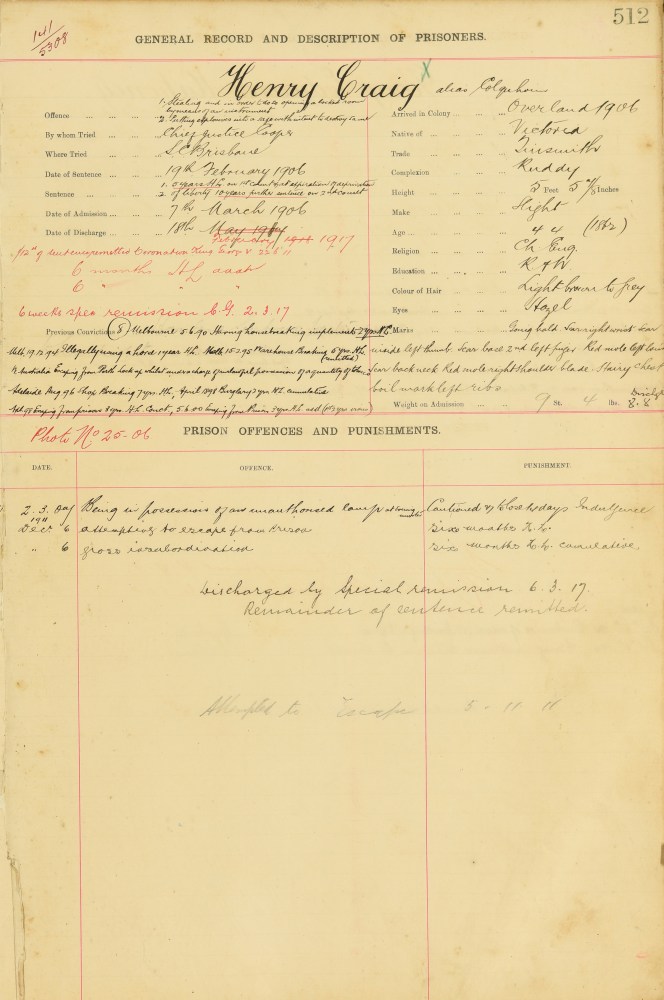 512
141
5308
GENERAL RECORD AND DESCRIPTION OF PRISONERS.
Henry Craig X alias Colquhoun
Offence ... 1. Stealing and in order to do so opening a locked room by means of an instrument
2. Putting explosives into a safe with intent to destroy same
By whom Tried ... Chief Justice Cooper
Where Tried ... S.C. Brisbane
Date of Sentence ... 19th February 1906
Sentence ... 1. years HL on 1st Count & at expiration of
2. of liberty 10 years further sentence on 2nd count
Date of Admission ... 7th March 1906
Date of Discharge ... 18th May
February 1911 1917
Arrived in Colony ... Overland 1906
Native of ... Victoria
Trade ... Tinsmith
Complexion ... Ruddy
Height ... 5 Feet 5 Inches
Make ... Slight
Age ... 44 (1862)
Religion ... Ch Eng.
Education ... R & W
Colour of Hair ... Light brown to grey
Eyes ... Hazel
Marks ... Going bald. Scar right wrist Scar
inside left thumb. Scar back 2nd left finger Red mole left
Scar back neck Red mole right shoulder blade. Hairy chest
boil mark left ribs
Weight on Admission ... 9 St. 4 lbs. Disch 8.8
1/12th of sentence remitted Coronation King George V 22.6.11
6 months HL
6 " "
6 weeks spec remission C.G. 2.3.17
Previous Convictions (8) Melbourne 5 6.90 Having housebreaking implements 2 yrs HL
Melb 19.12.94 Illegally using a horse 1 year HL. Melb 15.2.95 Warehouse Breaking 5 yrs HL
(remitted)
Adelaide Aug 96 Shop Breaking 7 yrs HL, April 1898 Burglary 3 yrs HL cumulative
from prison 2 yrs HL 5.6.00 from Prison 2 yrs HL
Photo No 25-06
PRISON OFFENCES AND PUNISHMENTS.
DATE. OFFENCE. PUNISHMENT.
2. 3. 09 Being in possession of an unauthorised lamp Cautioned & lose days Indulgence
1911
Decr 6 attempting to escape from Prison Six months H.L.
" 6 gross insubordination Six months H.L. cumulative.
Discharged by Special remission 6.3.17.
Remainder of sentence remitted.
Attempted to Escape 5-11 11